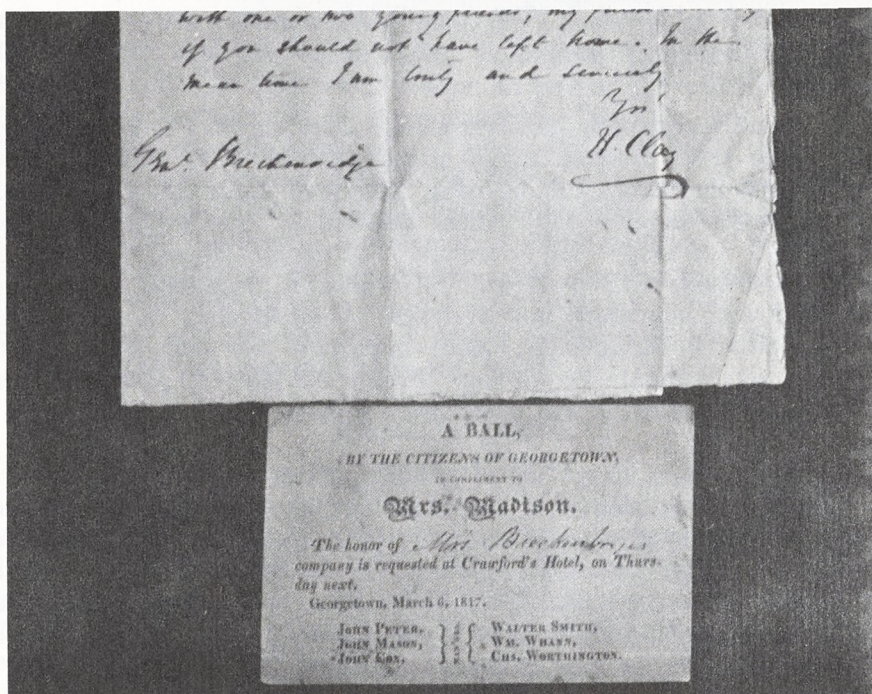 with one or two young friends, my
if you should not have left home. In the
mean time I am truly and sincerely
Yrs
H. Clay
Genl. Breckenridge
A BALL,
BY THE CITIZENS OF GEORGETOWN,
IN COMPLIMENT TO
Mrs. Madison.
The honor of Mrs Breckenbriges
company is requested at Crawford's Hotel, on Thurs-
day next.
Georgetown, March 6, 1817.
JOHN PETER,
JOHN MASON,
JOHN COX,
WALTER SMITH,
WM. WHANN,
CHS. WORTHINGTON.